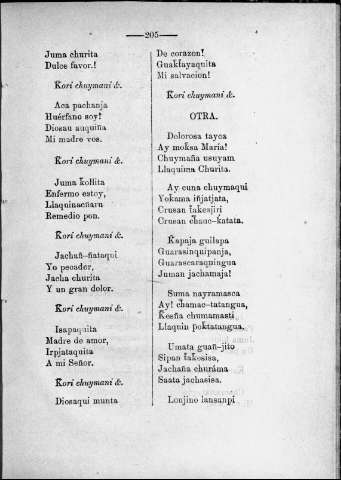 205
Juma churita
Dulce favor.!
Kori chuymani &.
Aca pachanja
Huérfano soy!
Diosau auquiña
Mi madre vos.
Kori chuymani &.
Juma kollita
Enfermo estoy,
Llaquinacñaru
Remedio pon.
Kori chuymani &.
Jachañ-ñataqui
Yo pecador,
Jacha churita
Y un gran dolor.
Kori chuymani &.
Isapaquita
Madre de amor,
Irpjataquita
A mi Señor.
Kori chuymani &.
Diosaqui munta
De corazon!
Guakfayaquita
Mi salvacion!
Kori chuymani &.
OTRA.
Dolorosa tayca
Ay moksa Maria!
Chuymaña usuyam
Llaquima Churita.
Ay cuna chuymaqui
Yokama iñjatjata,
Crusan fakesjiri
Crusan chauc-katata.
Kapaja guilapa
Guarasinquipanja,
Guarascaraquingua
Juman jachamaja!
Suma nayramasca
Ay! chamac-tatangua,
Kesña chumamasti
Llaquin poktatangua.
Umata guañ-jito
Sipan fakosisa,
Jachaña churáma
Saata jachasisa.
Lonjino lansanpi